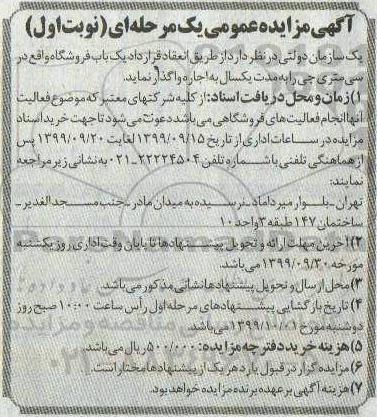 آگهی مزایده عمومی یک مرحله‌ای (نوبت اول)
یک سازمان دولتی در نظر دارد از طریق انعقاد قرارداد یک باب فروشگاه واقع در
سی متری جی را به مدت یکسال به اجاره واگذار نماید.
۱) زمان و محل دریافت اسناد: از کلیه شرکتهای معتبر که موضوع فعالیت
آنها انجام فعالیت های فروشگاهی می باشد دعوت می شود تا جهت خرید اسناد
مزایده در ساعات اداری از تاریخ ۱۳۹۹/۰۹/۱۵ لغایت ۱۳۹۹/۰۹/۲۰ پس
از هماهنگی تلفنی با شماره تلفن ۲۲۲۲۴۵۰۴-۰۲۱ به نشانی زیر مراجعه
نمایند:
تهران - بلوار میرداماد - نرسیده به میدان مادر - جنب مسجد الغدیر -
ساختمان ۱۴۷ طبقه ۳ واحد ۱۰
۲) آخرین مهلت ارائه و تحویل پیشنهادها تا پایان وقت اداری روز یکشنبه
مورخه ۱۳۹۹/۰۹/۳۰ می باشد.
۳) محل ارسال و تحویل پیشنهادها نشانی مذکور می باشد.
۴) تاریخ بازگشایی پیشنهادهای مرحله اول رأس ساعت ۱۰:۰۰ صبح روز
دوشنبه مورخ ۱۳۹۹/۱۰/۰۱ می باشد.
۵) هزینه خرید دفترچه مزایده: ۵۰۰/۰۰۰ ریال می باشد.
۶) مزایده گزار در قبول یا رد هر یک از پیشنهادها مختار است.
۷) هزینه آگهی بر عهده برنده مزایده خواهد بود.